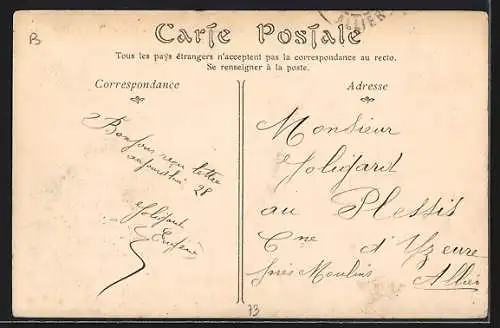 B
ALLIER
Carte Postale
Tous les pays étrangers n'acceptent pas la correspondance au recto.
Se renseigner à la poste.
Correspondance
Bonjour reçu lettre
aujourd'hui 28
Joligard
Eugène
Adresse
Monsieur
Joligard
au Plessis
Cne d'Yzeure
près Moulins
Allier
73